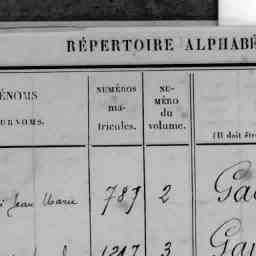 RÉPERTOIRE ALPHABÉ
ÉNOMS NUMÉROS NU-
MÉRO
ma- du
URNOMS. tricules. volume. (Il doit êtr
Jean Marie 787 2 Ga
1217 3 Ga